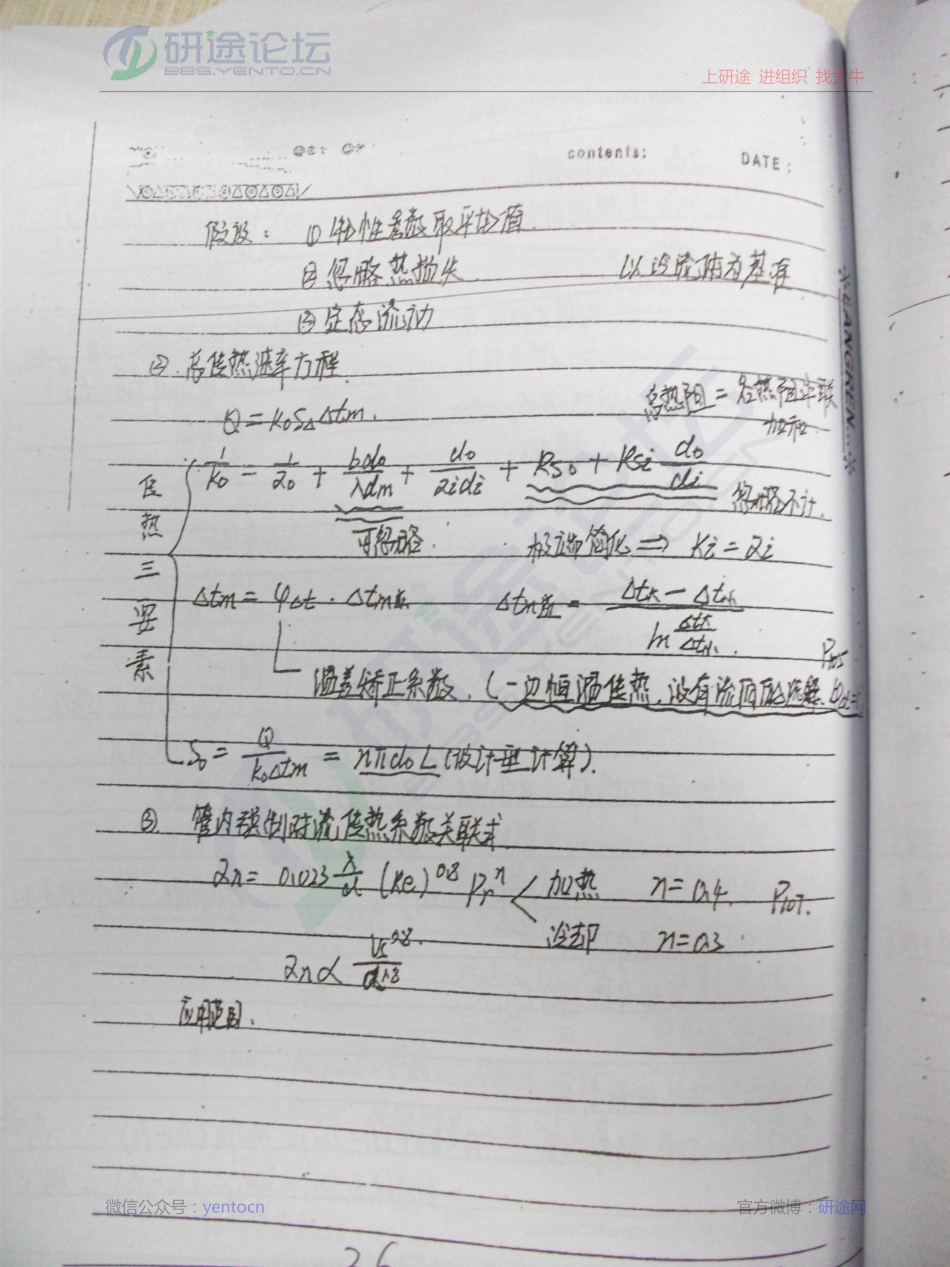 研途论坛
BBS.YENTO.CN
上研途 进组织 找大牛
contents:
DATE:
假设: ①物性系数取平均值.
②忽略热损失 以冷流体为基准
③定态流动
②.总传热速率方程.
Q=K₀S₀Δtm. 总热阻=各热阻串联
加和.
1/K₀ = 1/α₀ + bd₀/λdm + d₀/αidi + Rs₀ + Rsi d₀/di 忽略不计.
可忽略. 极端简化 ⇒ Ki=αi
传热三要素
Δtm = φΔt · Δtm逆. Δtm逆 = (Δt大 − Δt小)/(ln Δt大/Δt小).
温差矫正系数.(一边恒温传热,没有流向的选择. φΔt=1
S₀ = Q/K₀Δtm = nπd₀L(设计型计算).
③. 管内强制对流传热系数关联式.
αi= 0.023 λ/d (Re)^0.8 Pr^n < 加热 n=0.4. P107.
冷却 n=0.3
αi ∝ Vs^0.8/d^1.8
应用范围.
LANGREN
微信公众号:yentocn
官方微博:研途网
26